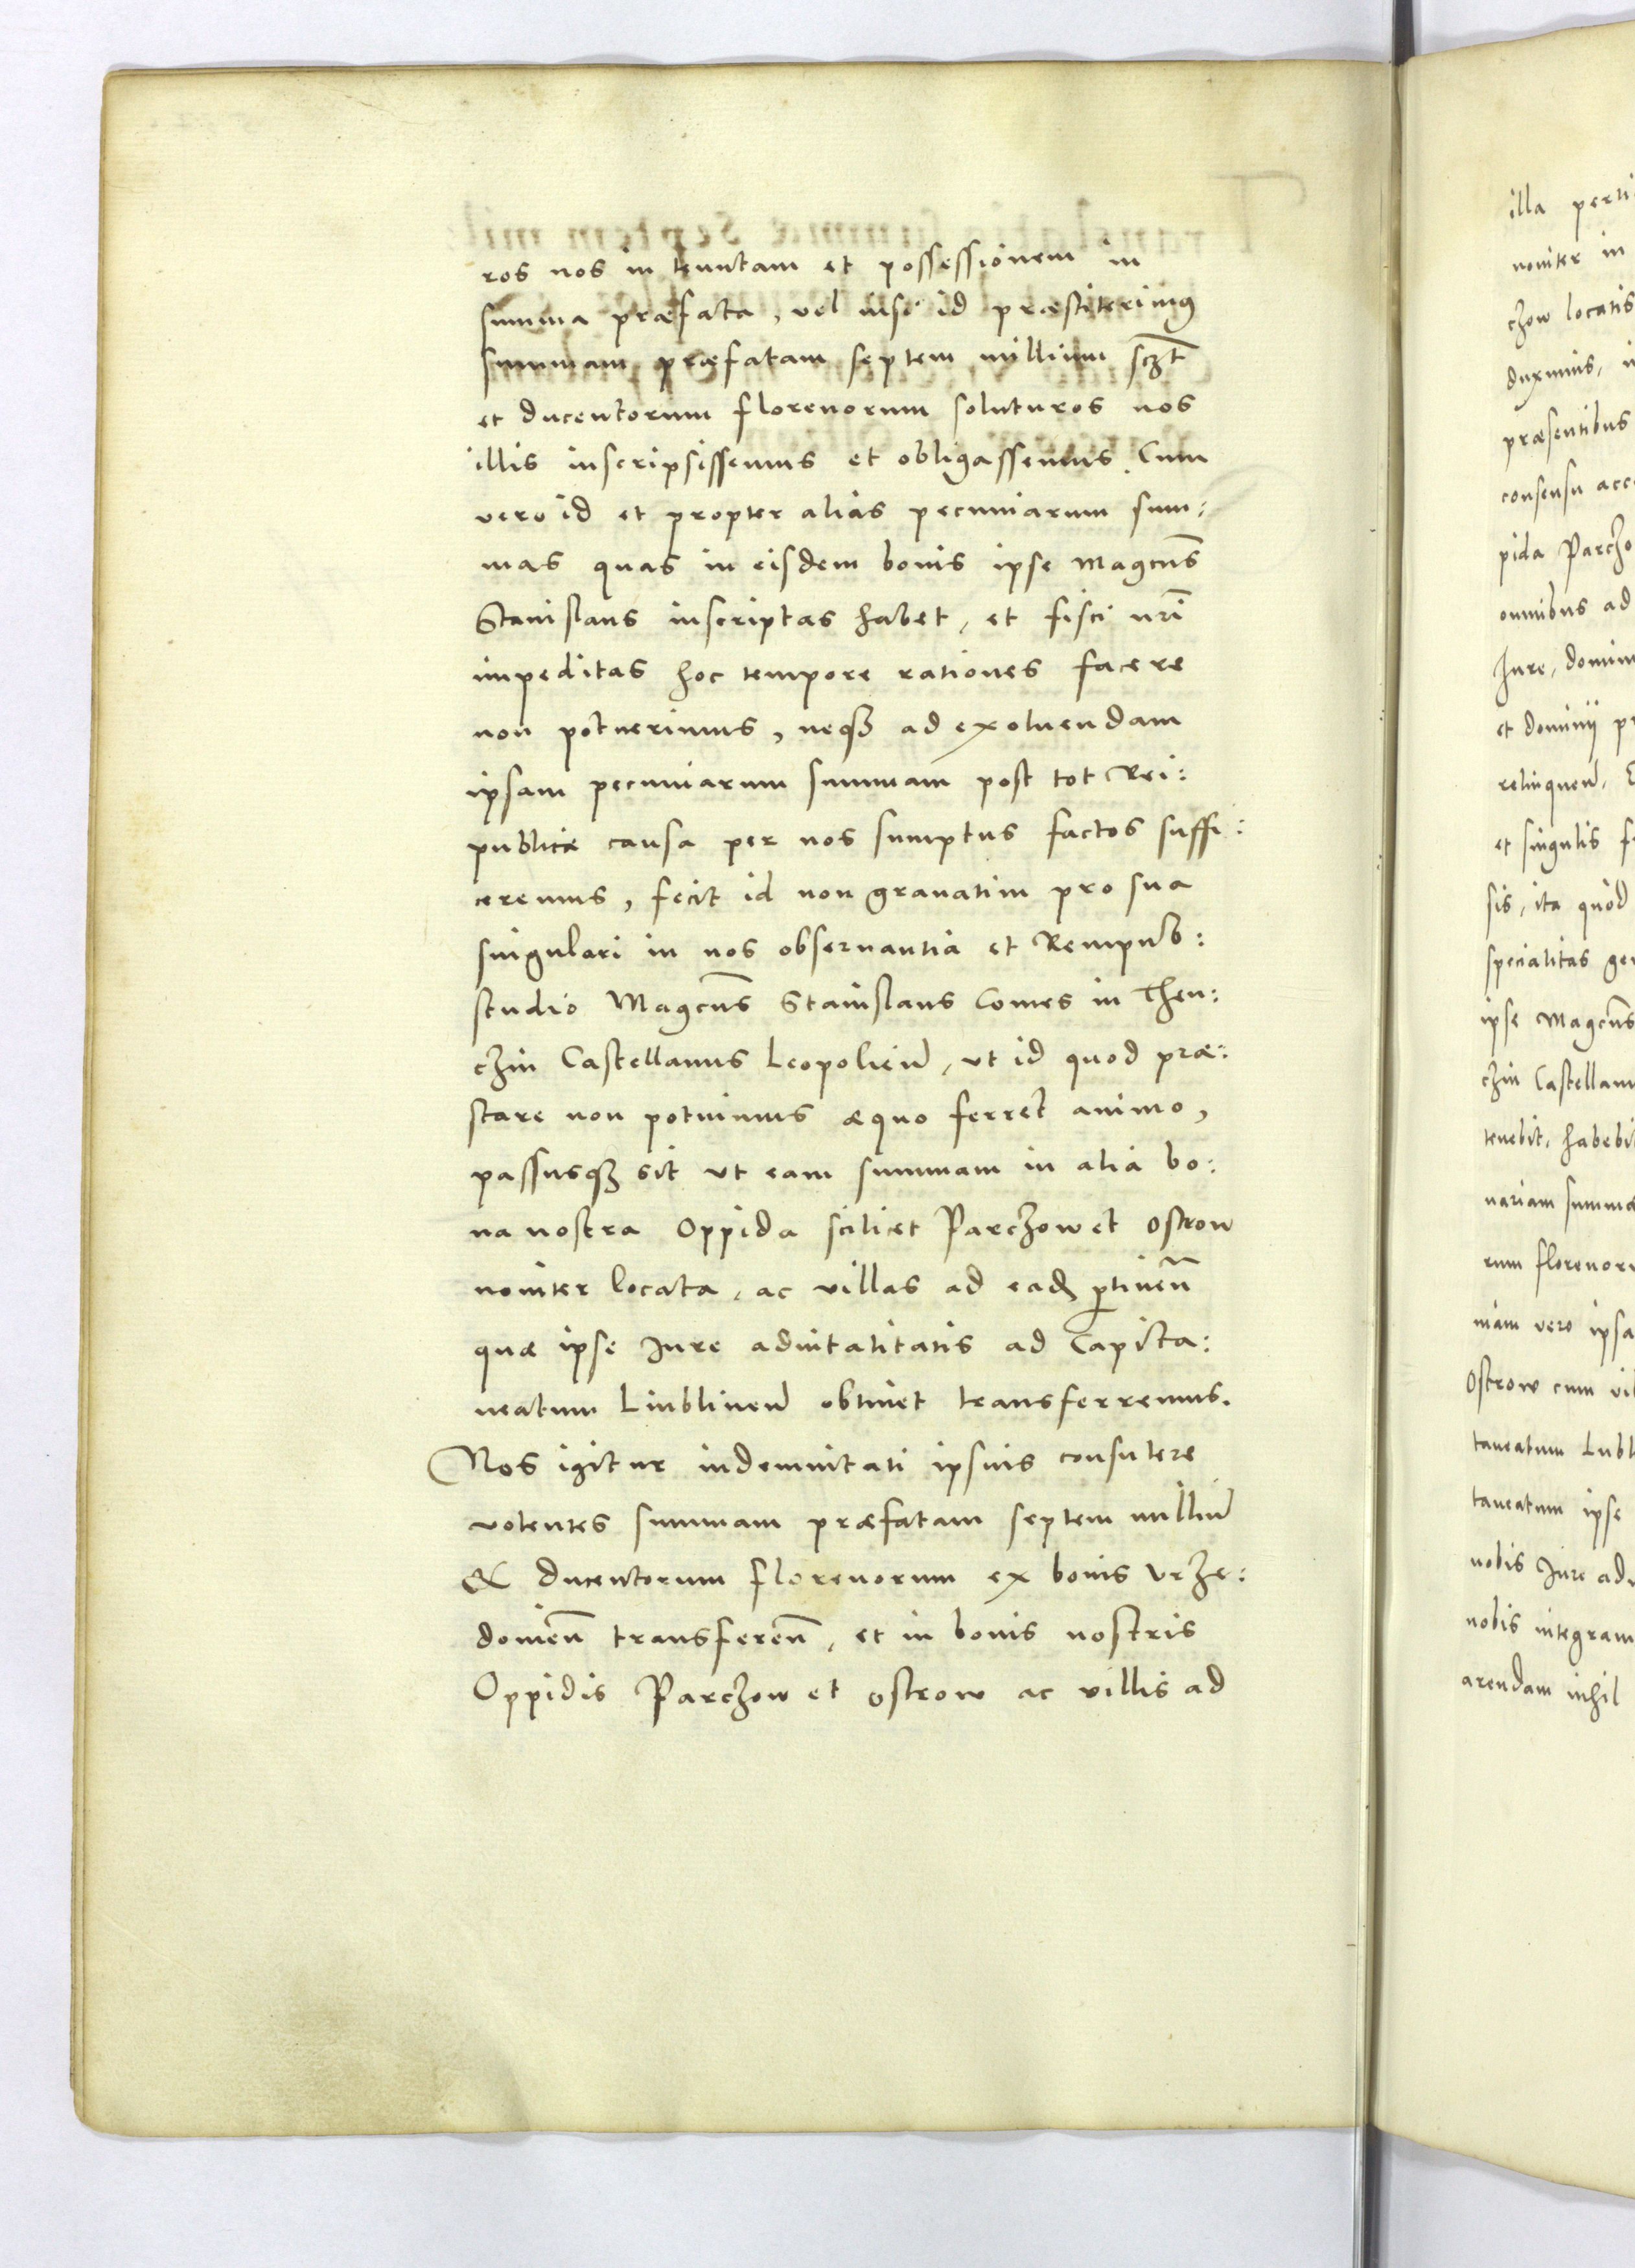 ros nos in tenutam et possessionem in
summa præfata, vel nisi id præstiterimus
summam præfatam septem millium sczt
et ducentorum florenorum soluturos nos
illis inscripsissemus et obligassemus. Cum
vero id et propter alias pecuniarum sum:
mas quas in eisdem bonis ipse Magcus
Stanislaus inscriptas habet, et fisci nri
impeditas hoc tempore rationes facere
non potuerimus, neqȝ ad exoluendam
ipsam pecuniarum summam post tot Rei:
publicæ causa per nos sumptus factos suffi:
ceremus, fecit id non grauatim pro sua
singulari in nos obseruantia et Rempub:
studio Magcus Stanislaus Comes in Then:
czin Castellanus Leopolien, vt id quod præ:
stare non potuimus æquo ferret animo,
passusqȝ sit vt eam summam in alia bo:
na nostra Oppida scilicet Parczow et Ostrow
nouiter locata, ac villas ad ead ptinen
quæ ipse Jure aduitalitatis ad Capita:
neatum Liublinen obtinet transferremus.
Nos igitur indemnitati ipsius consulere
volentes summam præfatam septem milliu
& ducentorum florenorum ex bonis Vrze:
douien transferen, et in bonis nostris
Oppidis Parczow et Ostrow ac villis ad
illa
nouiter in
czow locatis
duximus,
præsentibus
consensu
pida
omnibus ad
Jure,
et dominij
relinquen,
et singulis
sis, ita quod
specialitas
ipse Magcus
czin
tenebit,
nariam
rum
niam vero ipsa
Ostrow cum
taneatum
taneatum ipse
nobis Jure
nobis integram
arendam nihil